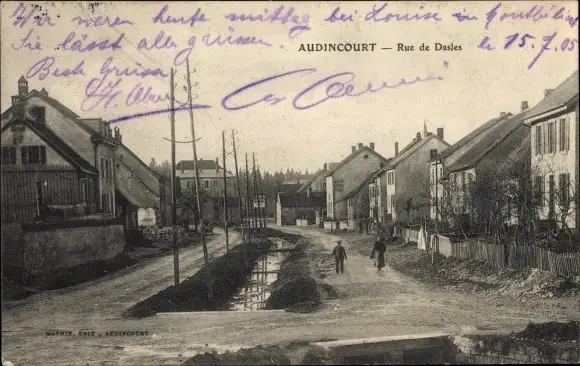 Wir waren heute mittag bei Louise in Montbéliard
Sie lässt alle grüssen.
le 15.7.05
AUDINCOURT — Rue de Dasles
Beste Grüsse
MATHIE, EDIT, AUDINCOURT